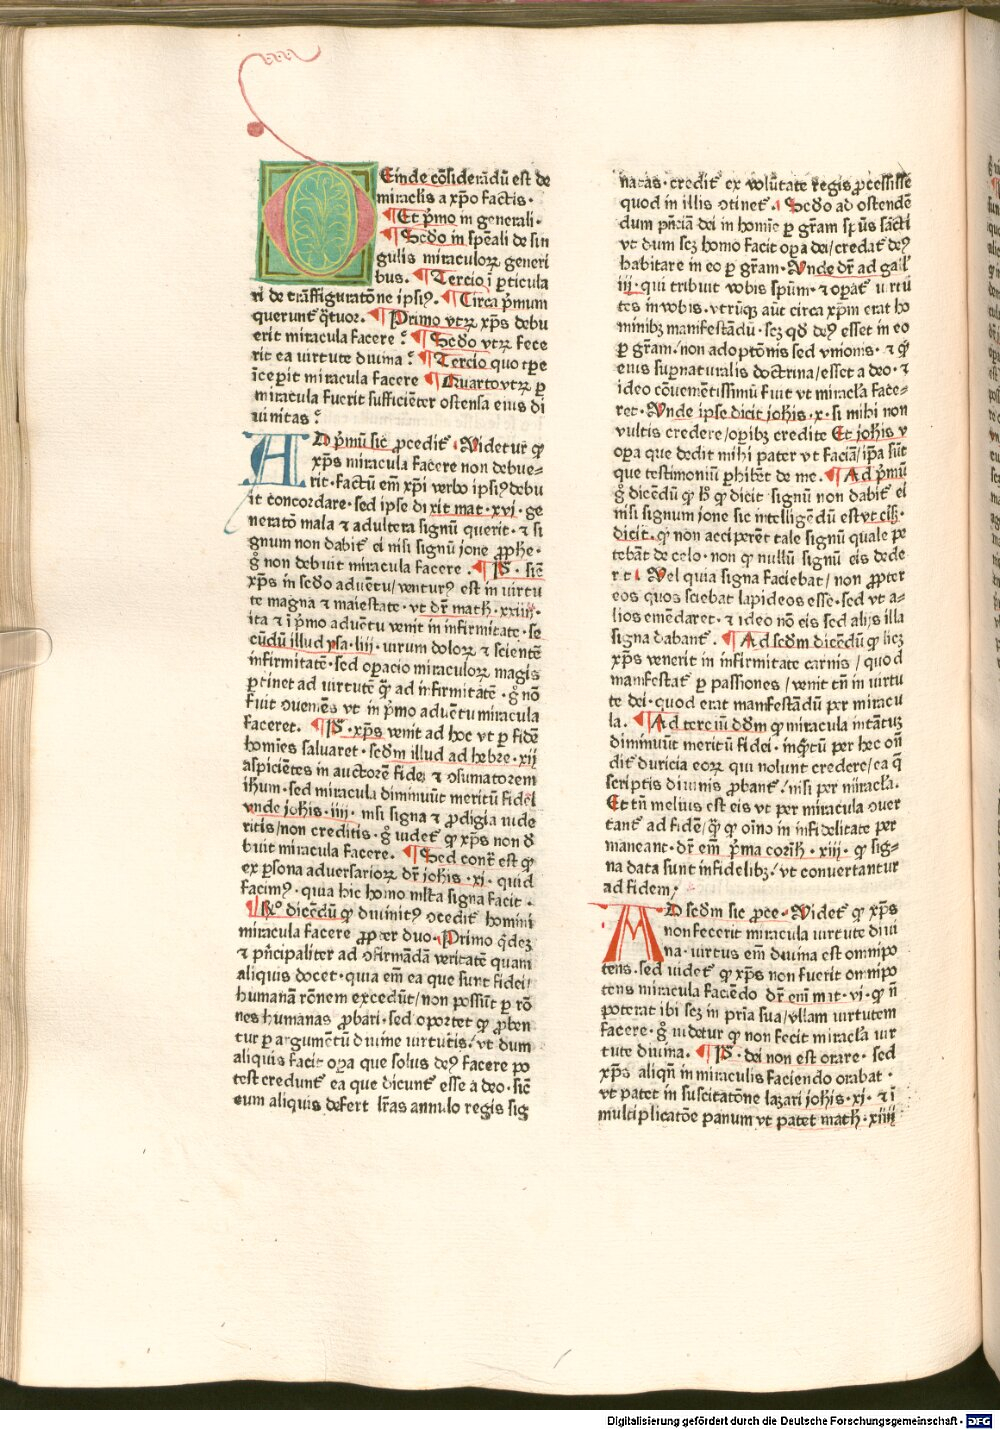 DEinde cōsiderādū est de
miraclis a xp̄o factis·
¶Et pͥmo in generali·
¶Scd̄o in sp̄eali de sin
gulis miraculoꝝ generi
bus. ¶Tercio ī ꝑticula
ri de trāsfiguratōne ipsiꝰ. ¶Circa pͥmum
querunt̄ q̄tuor. ¶Primo vtꝝ xp̄s debu
erit miracula facere? ¶Scd̄o vtꝝ fece
rit ea virtute diuina? ¶Tercio quo tꝑe
īceperit miracula facere ¶Quarto vtꝝ ꝑ
miracula fuerit sufficiēter ostensa eius di
uinitas?
AD pͥmū sic ꝓcedit̄. Videtur ꝙ
xp̄s miracula facere non debue⸗
rit· factū em̄ xp̄i verbo ipsiꝰ debu
it concordare· sed ipse dixit mat·xvi·ge
neratō mala ⁊ adultera signū querit· ⁊ si
gnum non dabit̄ ei nisi signū jone ꝓphe·
g̊ non debuit miracula facere. ¶P̄·sic̄
xp̄s in scd̄o aduētu/venturꝰ est in uirtu
te magna ⁊ maiestate·vt dr̄ math̄·xxiiii·
ita ⁊ ī pͥmo aduētu venit in infirmitate·se
cūdū illud ysa·liii·uirum doloꝝ ⁊ scientē
infirmitatē·sed oꝑacio miraculoꝝ magis
ꝑtinet ad uirtutē q̄ꝫ ad infirmitatē·g̊ nō
fuit ꝯueniēs vt in pͥmo aduētu miracula
faceret. ¶P̄·xp̄s venit ad hoc vt ꝑ fidē
homīes saluaret·scd̄m illud ad hebre·xij
aspiciētes in auctorē fidei ⁊ ꝯsumatorem
ihūm·sed miracula diminuūt meritū fidei
vnde johis·iiii·nisi signa ⁊ ꝓdigia uide
ritis/non creditis·g̊ uidet̄ ꝙ xp̄s non d̄
buit miracula facere. ¶Sed contͣ est ꝙ
ex ꝑsona aduersarioꝝ dr̄ johis·xi·quid
facimꝰ·quia hic homo ml̄ta signa facit·
¶R̄o dicēdū ꝙ diuinitꝰ ꝯcedit̄ homini
miracula facere ꝓpter duo·Primo q̄deꝫ
⁊ pͥncipaliter ad ꝯfirmādā veritatē quam
aliquis docet·quia em̄ ea que sunt fidei/
humanā rōnem excedūt/non possūt ꝑ rō
nes humanas ꝓbari·sed oportet ꝙ ꝓben
tur ꝑ argumētū diuine uirtutis/vt dum
aliquis facit oꝑa que solus deꝰ facere po
test credunt̄ ea que dicunt̄ esse a deo·sic̄
cum aliquis defert lr̄as annulo regis sig
natas·credit̄ ex volūtate regis ꝓcessisse
quod in illis ꝯtinet̄. Scd̄o ad ostendē
dum pn̄ciā dei in homīe ꝑ gr̄am sp̄us sācti
vt dum scꝫ homo facit oꝑa dei/credat̄ deꝰ
habitare in eo ꝑ gr̄am·Vnde dr̄ ad gal̄
iij·qui tribuit vobis spūm·⁊ oꝑat̄ uirtu
tes in vobis·vtrūqꝫ aūt circa xp̄m erat ho
minibꝫ manifestādū·scꝫ qd̄ deꝰ esset in eo
ꝑ gr̄am/non adoptōnis sed vnionis·⁊ ꝙ
eius supnaturalis doctrina/esset a deo·⁊
ideo cōuenientissimū fuit vt miracl̄a face⸗
ret·Vnde ipse dicit johis·x·si mihi non
vultis credere/oꝑibꝫ credite Et johis v
oꝑa que dedit mihi pater vt faciā/ip̄a sūt
que testimoniū ꝑhibēt de me. ¶Ad pͥmū
g̊ dicēdū ꝙ h̄ ꝙ dicit signū non dabit̄ ei
nisi signum jone sic intelligēdū est vt cris̄·
dicit·ꝙ non acciperēt tale signū quale pe
tebāt de celo·non ꝙ nullū signū eis dede
rit Vel quia signa faciebat/non ꝓpter
eos quos sciebat lapideos esse·sed vt a⸗
lios emēdaret·⁊ ideo nō eis sed alijs illa
signa dabant̄. ¶Ad scd̄m dicēdū ꝙ licꝫ
xp̄s venerit in infirmitate carnis/quod
manifestat̄ ꝑ passiones/venit tn̄ in uirtu
te dei·quod erat manifestādū per miracu
la. ¶Ad terciū dd̄m ꝙ miracula intātuꝫ
diminuūt meritū fidei·inq̄ꝫtū per hec on̄
dit̄ duricia eoꝝ qui nolunt credere/ea q̄
scriptis diuinis ꝓbant̄/nisi per miracl̄a.
Et tn̄ melius est eis vt per miracula ꝯuer
tant̄ ad fidē/q̄ꝫ ꝙ oīno in infidelitate per
maneant·dr̄ em̄ pͥma corīth̄·xiii·ꝙ sig⸗
na data sunt infidelibꝫ/vt conuertantur
ad fidem/
AD scd̄m sic ꝓce·Videt̄ ꝙ xp̄s
non fecerit miracula uirtute diui
na·uirtus em̄ diuina est omnipo
tens·sed uidet̄ ꝙ xp̄s non fuerit omnipo
tens miracula faciendo dr̄ em̄ mat·vi·ꝙ n̄
poterat ibi scꝫ in pr̄ia sua/vllam uirtutem
facere·g̊ uidetur ꝙ non fecit miracl̄a uir
tute diuina. ¶P̄·dei non est orare·sed
xp̄s aliqn̄ in miraculis faciendo orabat·
vt patet in suscitatōne lazari johis·xi·⁊ ī
multiplicatōe panum vt patet math̄·xiiij
Digitalisierung gefördert durch die Deutsche Forschungsgemeinschaft - DFG